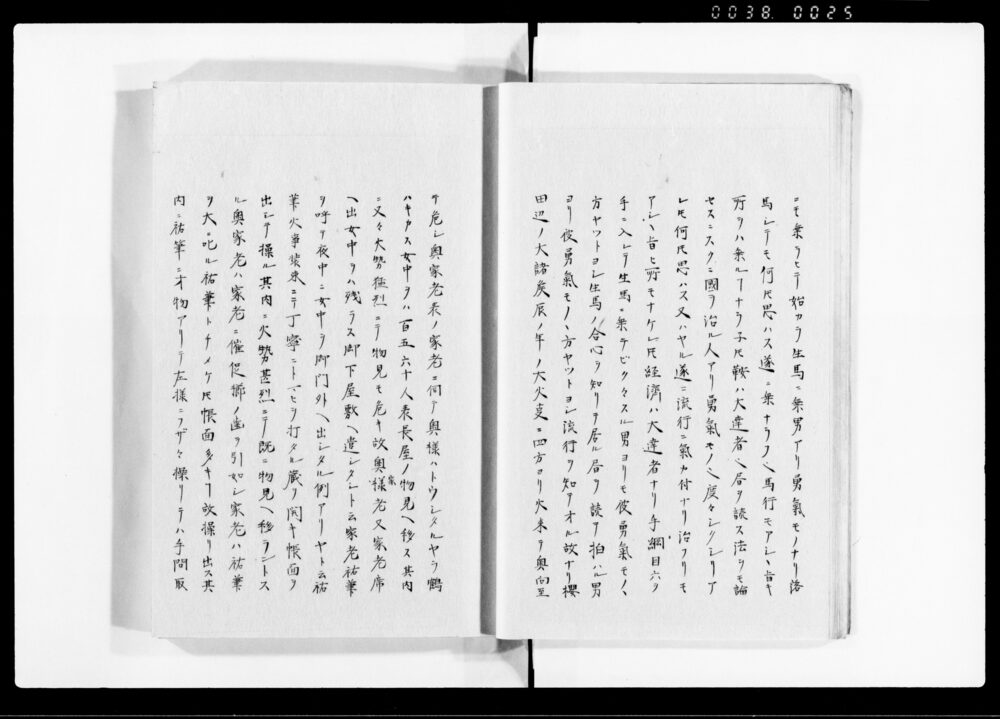 0038 0025
ニモ乗ラセテ始カラ生馬ニ乗男アリ勇氣モノナリ落
馬シテモ何尺思ハス遂ニ乗ナラフヘ馬行モアシヽ旨キ
所ヲハ乗ルヿナラ子尺鞍ハ大達者ヘ居ヲ談ス法ラモ論
セスニスクニ國ヲ治ル人アリ勇氣モノヘ度々シクシリア
レ尺何尺思ハス又ハヤル遂ニ流行ニ氣カ付ナリ治フリモ
アシヽ旨ヒ所モナケレ尺経濟ハ大達者ナリ手綱目六ヲ
手ニ入レテ生馬ニ乗テビクヽスル男ヨリモ彼勇氣モノヽ
方ヤツトヨシ生馬ノ合心ヲ知リヲ居ル居ヲ談ヲ拍ハル男
ヨリ彼勇氣モノヽ方ヤツトヨシ流行ヲ知ヲオル故ナリ櫻
田辺ノ大諸矦辰ノ年ノ大火支ニ四方ヨリ火来テ奥向至
テ危シ奥家老表ノ家老ニ伺テ奥様ハトウシタルヤラ鶴
ハヤカス女中ヲハ百五六十人表長屋ノ物見ヘ移ス其内
ニ又々大勢猛烈ニテ物見モ危キ故奥様家老又家老席
ヘ出女中ヲハ残ラス御下屋敷ヘ遣シタシト云家老祐筆
ヲ呼テ夜中ニ女中ヲ御門外ヘ出シタル例アリヤト云祐
筆火事装束ニテ丁寧ニトヾセラ打タル蔵ヲ開キ帳面ヲ
出シテ操ル其内ニ火勢甚烈ニテ既ニ物見ヘ移ラントス
ル奥家老ハ家老ニ催促擲ノ齒ヲ引如シ家老ハ祐筆
ヲ大ニ叱ル祐筆トチメケ尺帳面多キヿ故操リ出ス其
内ニ祐筆ニ才物アリテ左様ニヲザ々操リテハ手間取